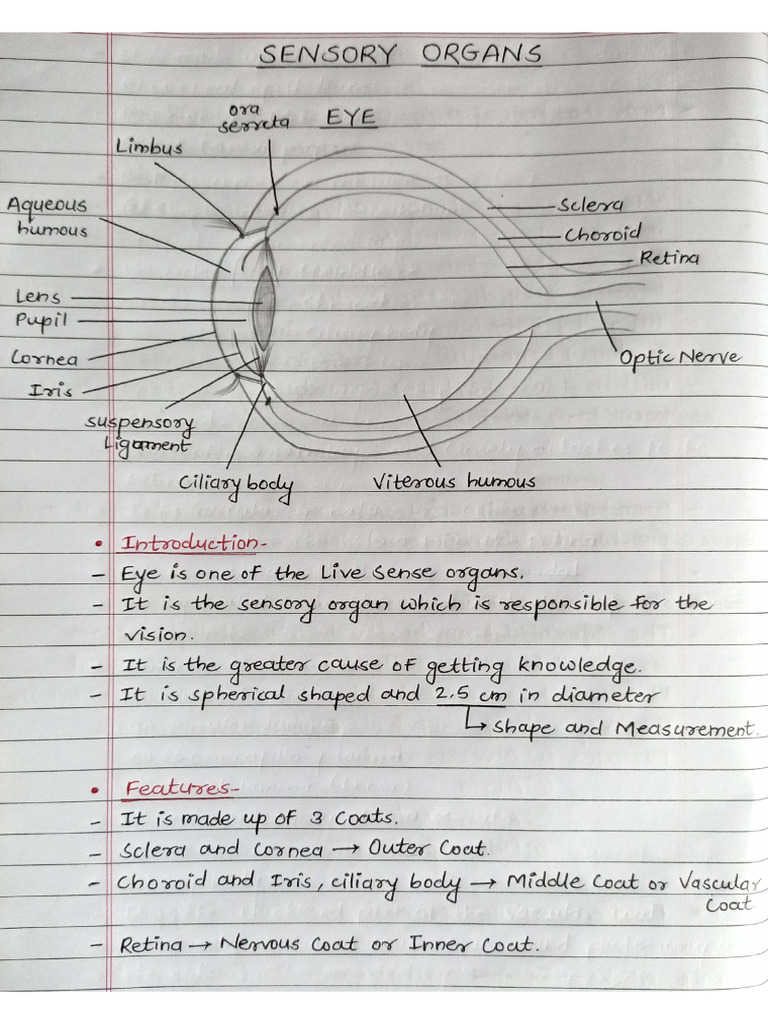 SENSORY ORGANS
EYE
ora
serreta
Limbus
Aqueous
humous
Lens
Pupil
Cornea
Iris
suspensory
Ligament
Ciliary body
Viterous humous
Sclera
Choroid
Retina
Optic Nerve
• Introduction-
- Eye is one of the Live Sense organs.
- It is the sensory organ which is responsible for the
vision.
- It is the greater cause of getting knowledge.
- It is spherical shaped and 2.5 cm in diameter
↳ Shape and Measurement.
• Features-
- It is made up of 3 coats.
- Sclera and Cornea → Outer Coat.
- Choroid and Iris, ciliary body → Middle Coat or Vascular
Coat
- Retina → Nervous Coat or Inner Coat.